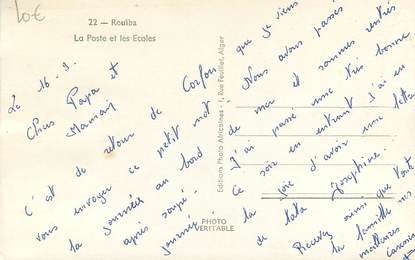 10€
22 — Rouïba
La Poste et les Ecoles
Le 16.9.
Chers Papa et
Maman
C'est de retour de Corfou
que je viens
vous envoyer ce petit mot.
Nous avons passés
la journée au bord
de mer et sommes rentrés
après soupé.
J'ai passé une très bonne
journée.
ce soir en entrant j'ai eu
la joie d'avoir une lettre
de tata Joséphine.
Recevez ainsi que toute
la famille mes
meilleures
Editions Photo Africaines - 1, Rue Feuillet, Alger
PHOTO
VERITABLE